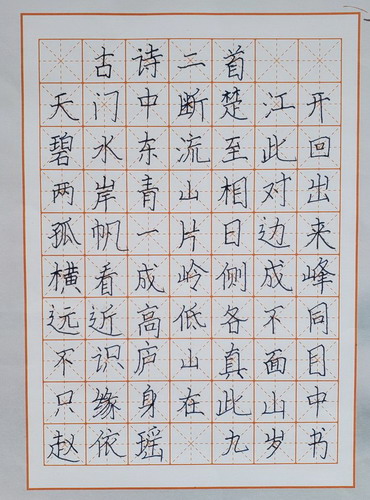 古诗二首
天门中断楚江开
碧水东流至此回
两岸青山相对出
孤帆一片日边来
横看成岭侧成峰
远近高低各不同
不识庐山真面目
只缘身在此山中
赵依瑶 九岁书